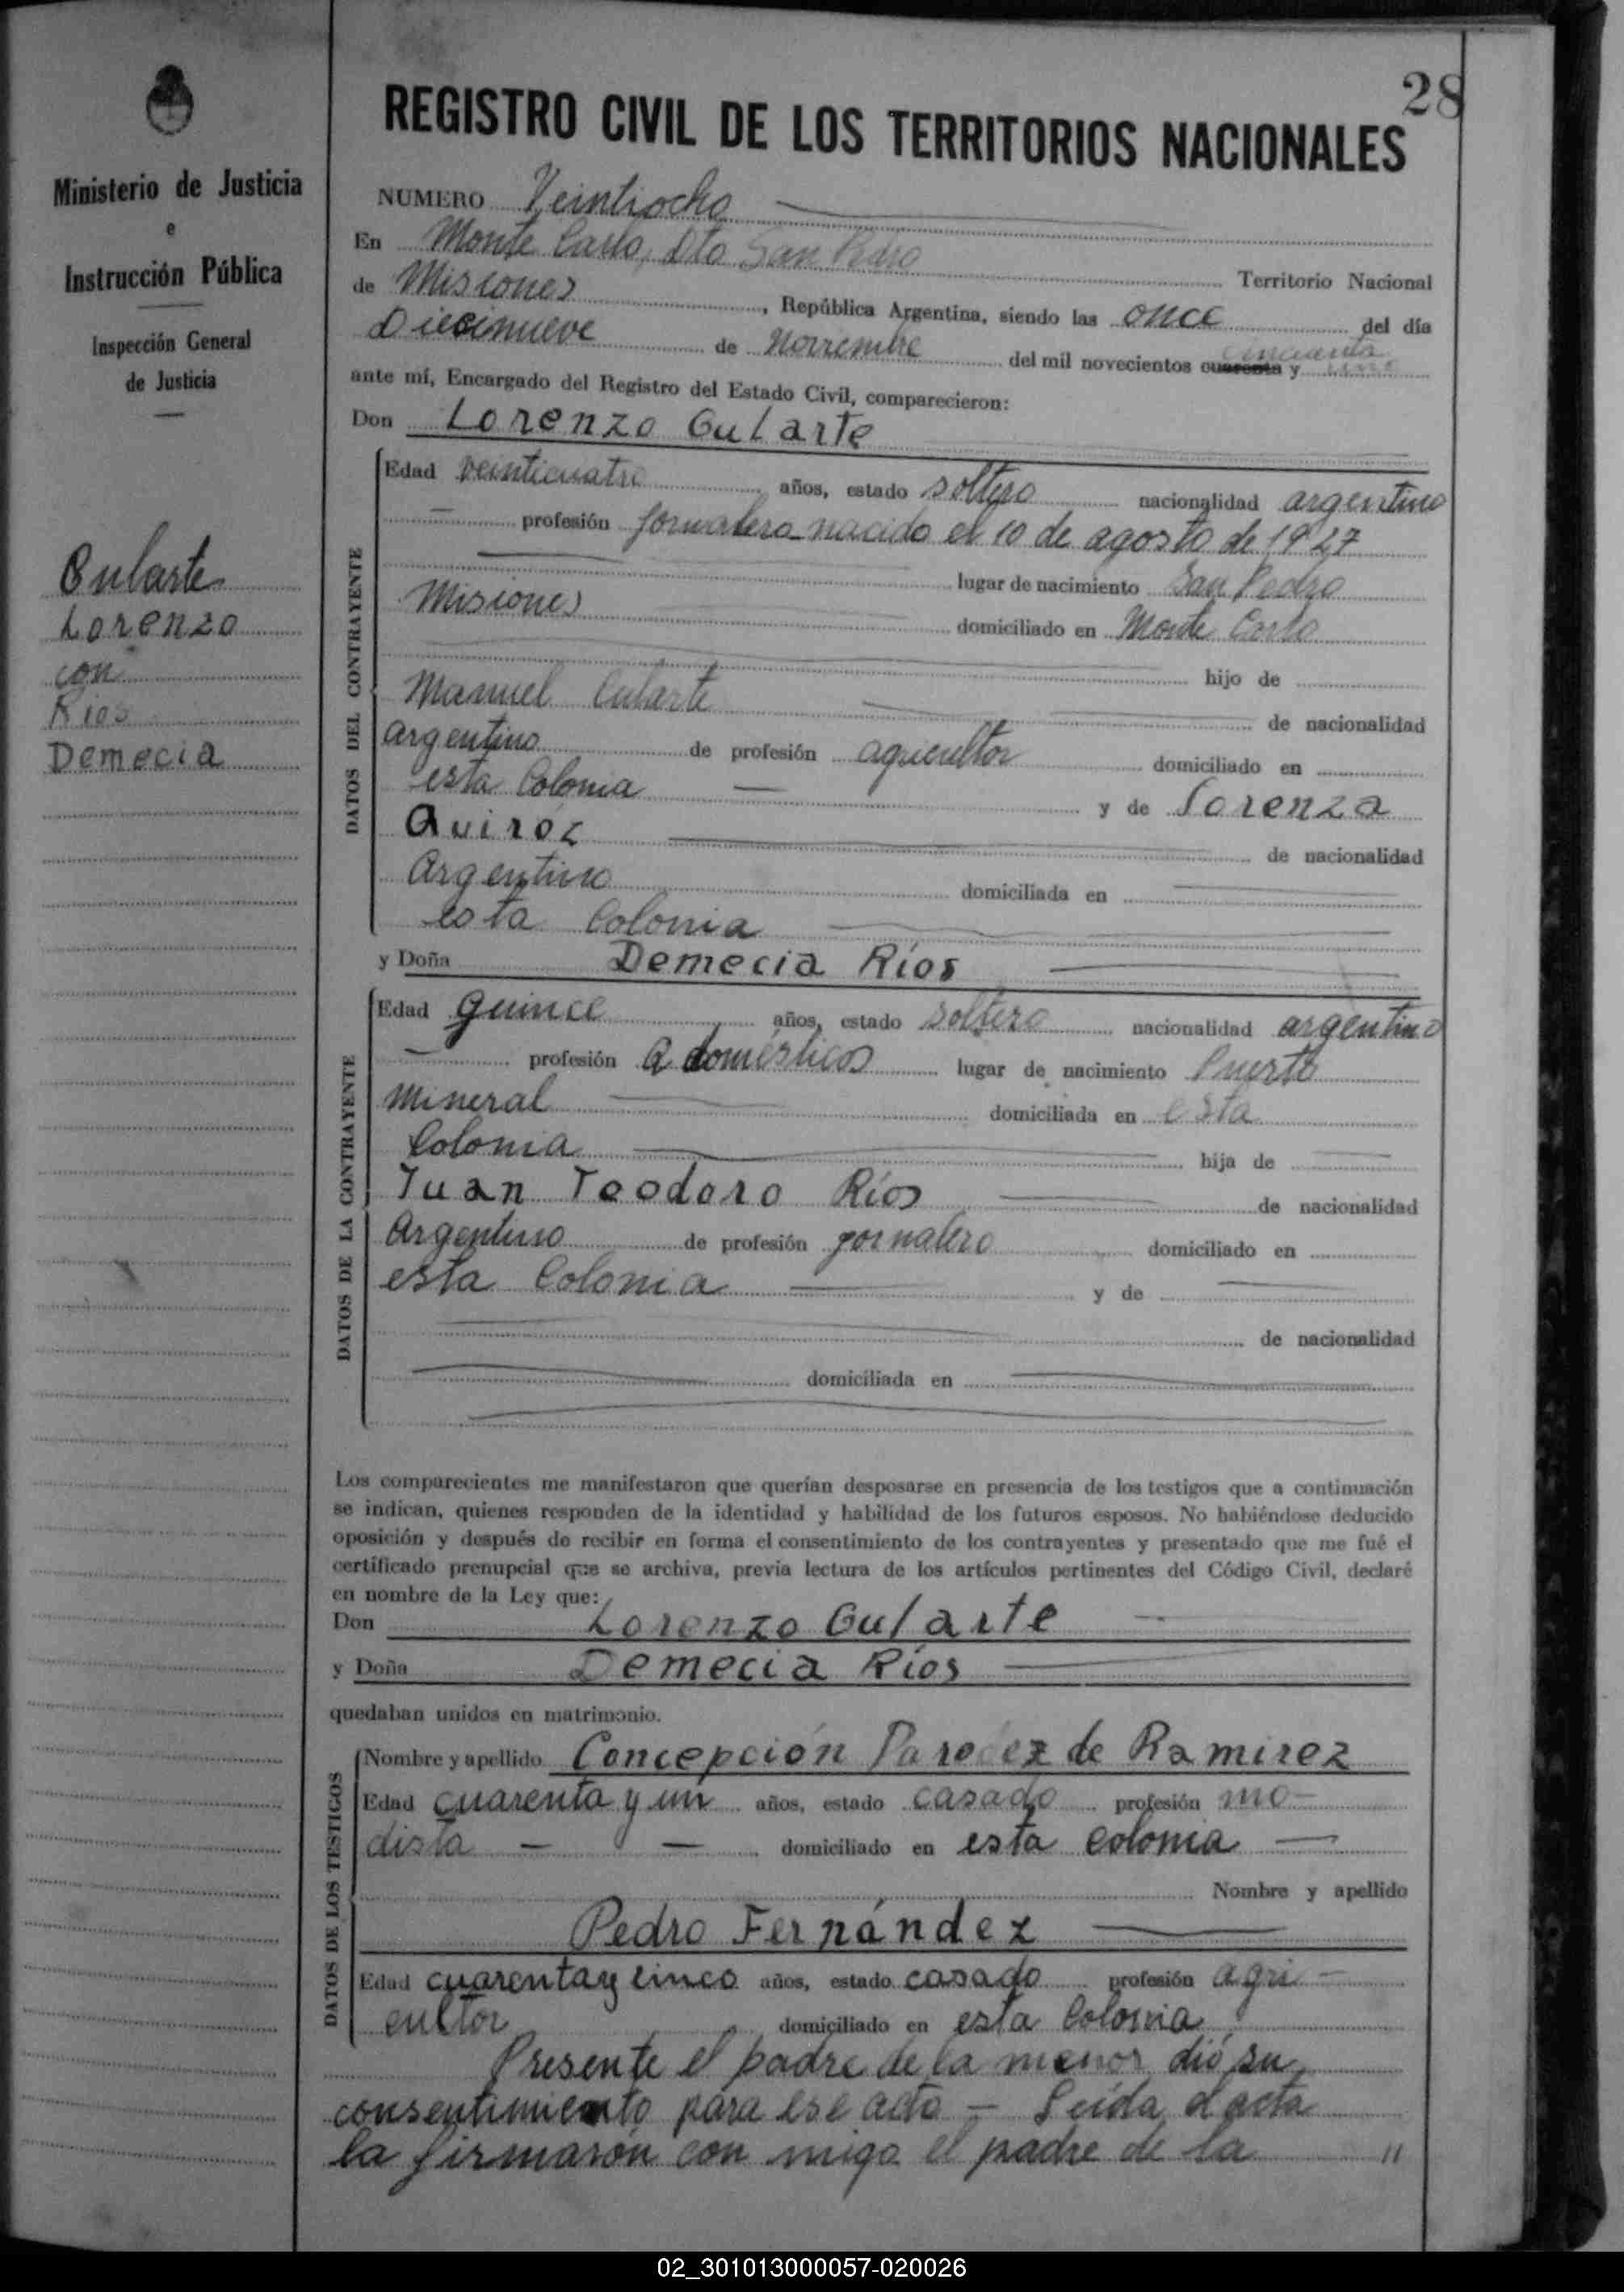 28
REGISTRO CIVIL DE LOS TERRITORIOS NACIONALES
Ministerio de Justicia
e
Instrucción Pública
Inspección General
de Justicia
Gularte
Lorenzo
con
Rios
Demecia
NUMERO Veintiocho
En Monte Carlo, Dto San Pedro Territorio Nacional
de Misiones, República Argentina, siendo las once del día
Diecinueve de Noviembre del mil novecientos cuarenta cincuenta y uno
ante mí, Encargado del Registro del Estado Civil, comparecieron:
Don Lorenzo Gularte
DATOS DEL CONTRAYENTE
Edad veinticuatro años, estado soltero nacionalidad argentino
profesión jornalero nacido el 10 de agosto de 1927
lugar de nacimiento San Pedro
Misiones domiciliado en Monte Carlo
hijo de
Manuel Gularte de nacionalidad
argentino de profesión agricultor domiciliado en
esta Colonia y de Lorenza
Quiróz de nacionalidad
Argentino domiciliada en
esta Colonia
y Doña Demecia Ríos
DATOS DE LA CONTRAYENTE
Edad quince años, estado soltero nacionalidad argentino
profesión Q domésticos lugar de nacimiento Puerto
Mineral domiciliada en esta
Colonia hija de
Juan Teodoro Ríos de nacionalidad
Argentino de profesión jornalero domiciliado en
esta Colonia y de
de nacionalidad
domiciliada en
Los comparecientes me manifestaron que querían desposarse en presencia de los testigos que a continuación
se indican, quienes responden de la identidad y habilidad de los futuros esposos. No habiéndose deducido
oposición y después de recibir en forma el consentimiento de los contrayentes y presentado que me fué el
certificado prenupcial que se archiva, previa lectura de los artículos pertinentes del Código Civil, declaré
en nombre de la Ley que:
Don Lorenzo Gularte
y Doña Demecia Ríos
quedaban unidos en matrimonio.
DATOS DE LOS TESTIGOS
Nombre y apellido Concepción de Ramirez
Edad cuarenta y un años, estado casado profesión mo-
dista domiciliado en esta colonia
Nombre y apellido
Pedro Fernández
Edad cuarenta y cinco años, estado casado profesión agri-
cultor domiciliado en esta Colonia
Presente el padre de la menor dió su
consentimiento para ese acto - Leída el acta
la firmarón con migo el padre de la "
02_301013000057-020026